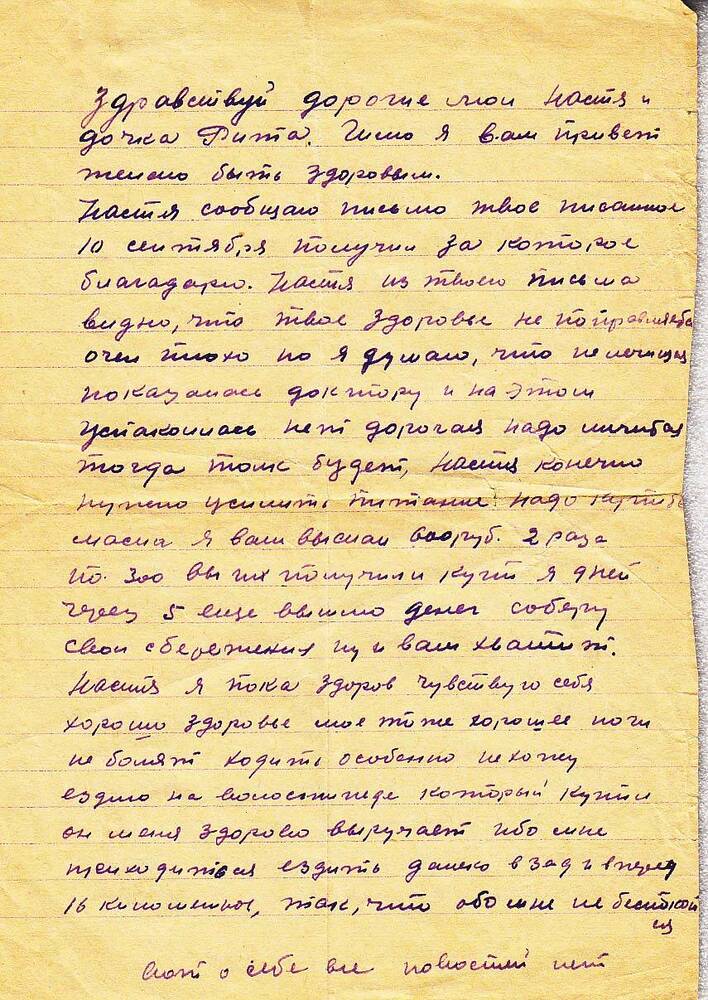 Здравствуй дорогие мои Настя и
дочка Рита. Шлю я вам привет
желаю быть здоровым.
Настя сообщаю письмо твое писанное
10 сентября получил за которое
благадарю. Настя из твоего письма
видно, что твое здоровье не поправляеться
очен плохо но я думаю, что не лечишся
показалась доктору и на этом
успакоилась нет дорогая надо личиться
тогда толк будет, Настя конечно
нужно усилить питание надо купить
масла я вам выслал 600 руб. 2 раза
по 300 вы их получили я дней
через 5 еще вышлю денег соберу
свои сбережения ну и вам хватит.
Настя я пока здоров чувствую себя
хорошо здоровье мое тоже хорошее ноги
не болят ходить особенно не хожу
ездию на волосипеде который купил
он меня здорово выручает ибо мне
приходиться ездить далеко в зад и вперед
16 километров, так, что обо мне не беспокой
ся
вот о себе все новостей нет